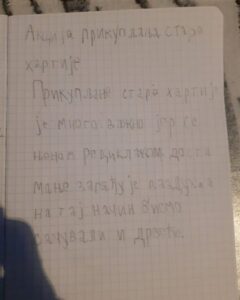 Акција прикупљања старе
хартије
Прикупљање старе хартије
је много важно јер се
њеном рециклажом доста
мање загађује
на тај начин бисмо
сачували и дрвеће.